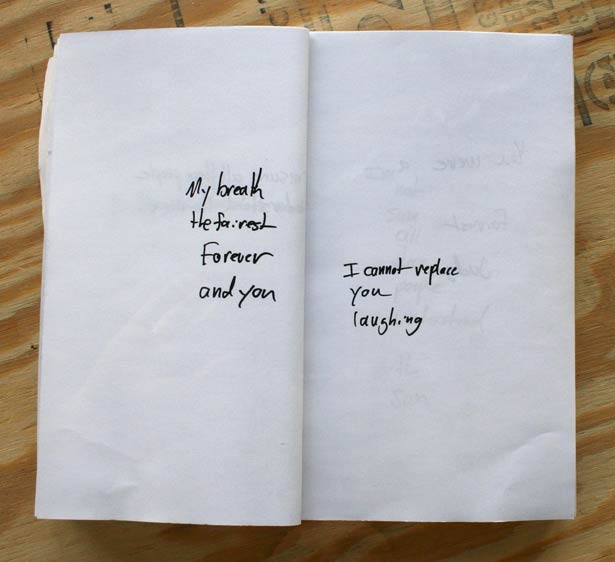 My breath
the fairest
Forever
and you
I cannot replace
you
laughing